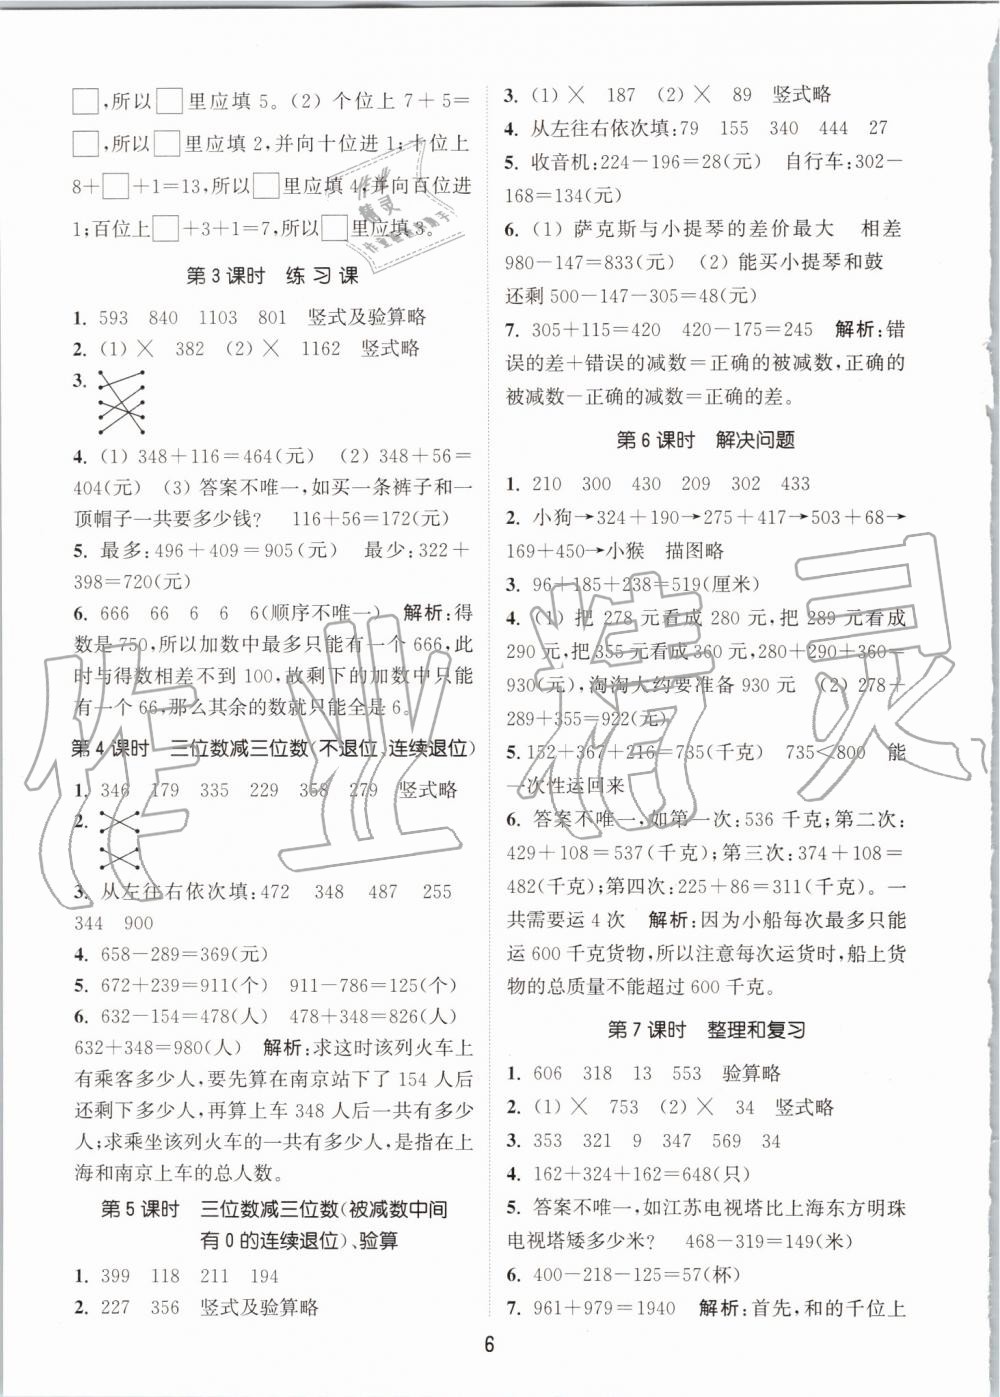 □,所以□里应填5。(2) 个位上7+5=
□,所以□里应填2,并向十位进1;十位上
8+□+1=13,所以□里应填4,并向百位进
1;百位上□+3+1=7,所以□里应填3。
第3课时 练习课
1. 593 840 1103 801 竖式及验算略
2. (1) × 382 (2) × 1162 竖式略
3.
4. (1) 348+116=464(元) (2) 348+56=
404(元) (3) 答案不唯一,如买一条裤子和一
顶帽子一共要多少钱? 116+56=172(元)
5. 最多:496+409=905(元) 最少:322+
398=720(元)
6. 666 66 6 6 6(顺序不唯一) 解析:得
数是750,所以加数中最多只能有一个666,此
时与得数相差不到100,故剩下的加数中只能
有一个66,那么其余的数就只能全是6。
第4课时 三位数减三位数(不退位、连续退位)
1. 346 179 335 229 358 279 竖式略
2.
3. 从左往右依次填:472 348 487 255
344 900
4. 658-289=369(元)
5. 672+239=911(个) 911-786=125(个)
6. 632-154=478(人) 478+348=826(人)
632+348=980(人) 解析:求这时该列火车上
有乘客多少人,要先算在南京站下了154人后
还剩下多少人,再算上车348人后一共有多少
人;求乘坐该列火车的一共有多少人,是指在上
海和南京上车的总人数。
第5课时 三位数减三位数(被减数中间
有0的连续退位)、验算
1. 399 118 211 194
2. 227 356 竖式及验算略
3. (1) × 187 (2) × 89 竖式略
4. 从左往右依次填:79 155 340 444 27
5. 收音机:224-196=28(元) 自行车:302-
168=134(元)
6. (1) 萨克斯与小提琴的差价最大 相差
980-147=833(元) (2) 能买小提琴和鼓
还剩500-147-305=48(元)
7. 305+115=420 420-175=245 解析:错
误的差+错误的减数=正确的被减数,正确的
被减数-正确的减数=正确的差。
第6课时 解决问题
1. 210 300 430 209 302 433
2. 小狗→324+190→275+417→503+68→
169+450→小猴 描图略
3. 96+185+238=519(厘米)
4. (1) 把278元看成280元,把289元看成
290元,把355元看成360元,280+290+360=
930(元),淘淘大约要准备930元 (2) 278+
289+355=922(元)
5. 152+367+216=735(千克) 735<800 能
一次性运回来
6. 答案不唯一,如第一次:536千克;第二次:
429+108=537(千克);第三次:374+108=
482(千克);第四次:225+86=311(千克)。一
共需要运4次 解析:因为小船每次最多只能
运600千克货物,所以注意每次运货时,船上货
物的总质量不能超过600千克。
第7课时 整理和复习
1. 606 318 13 553 验算略
2. (1) × 753 (2) × 34 竖式略
3. 353 321 9 347 569 34
4. 162+324+162=648(只)
5. 答案不唯一,如江苏电视塔比上海东方明珠
电视塔矮多少米? 468-319=149(米)
6. 400-218-125=57(杯)
7. 961+979=1940 解析:首先,和的千位上
6
作业精灵